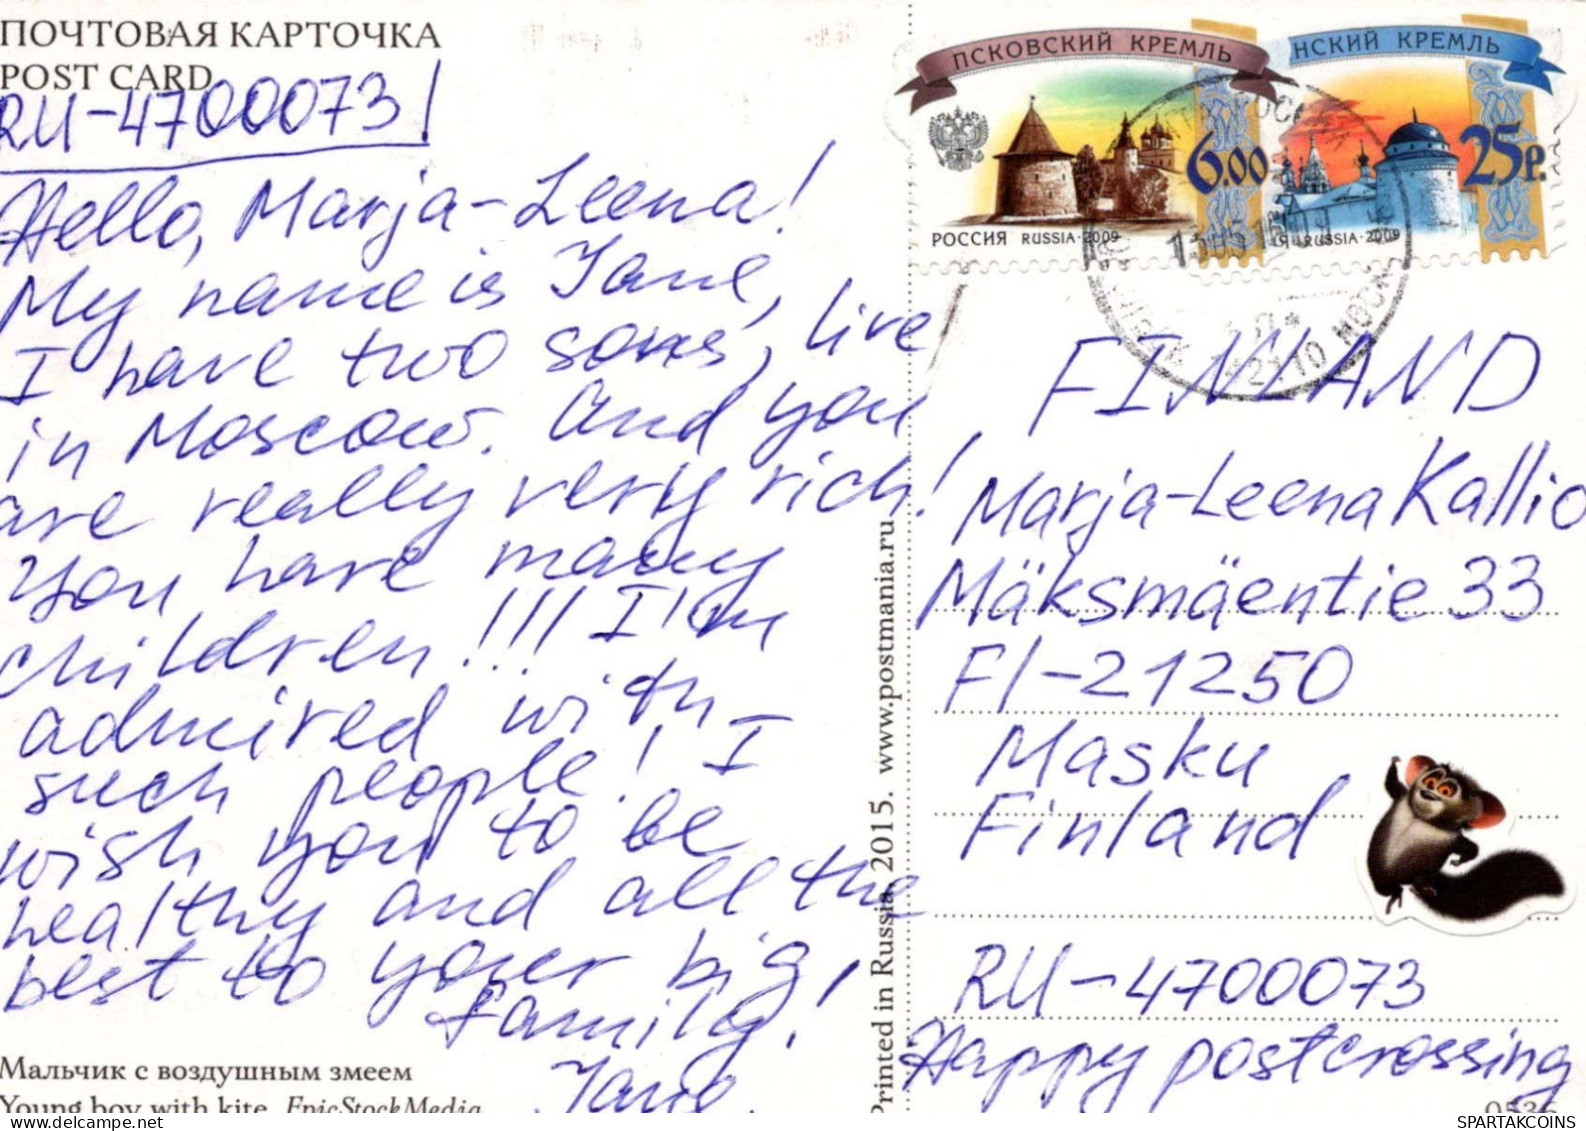 ПОЧТОВАЯ КАРТОЧКА
POST CARD
RU-4700073!
Hello, Marja-Leena!
My name is Jane,
I have two sons, live
in Moscow. And you
are really very rich!
You have many
children!!! I'm
admired with
such people! I
wish you to be
healthy and all the
best to your big
family!
Jane.
Мальчик с воздушным змеем
Young boy with kite. EpicStockMedia
Printed in Russia, 2015. www.postmania.ru
ПСКОВСКИЙ КРЕМЛЬ
6.00
РОССИЯ RUSSIA·2009
НСКИЙ КРЕМЛЬ
25р.
ИЯ RUSSIA·2009
FINLAND
Marja-Leena Kallio
Mäksmäentie 33
FI-21250
Masku
Finland
RU-4700073
Happy postcrossing
0536
SPARTAKCOINS